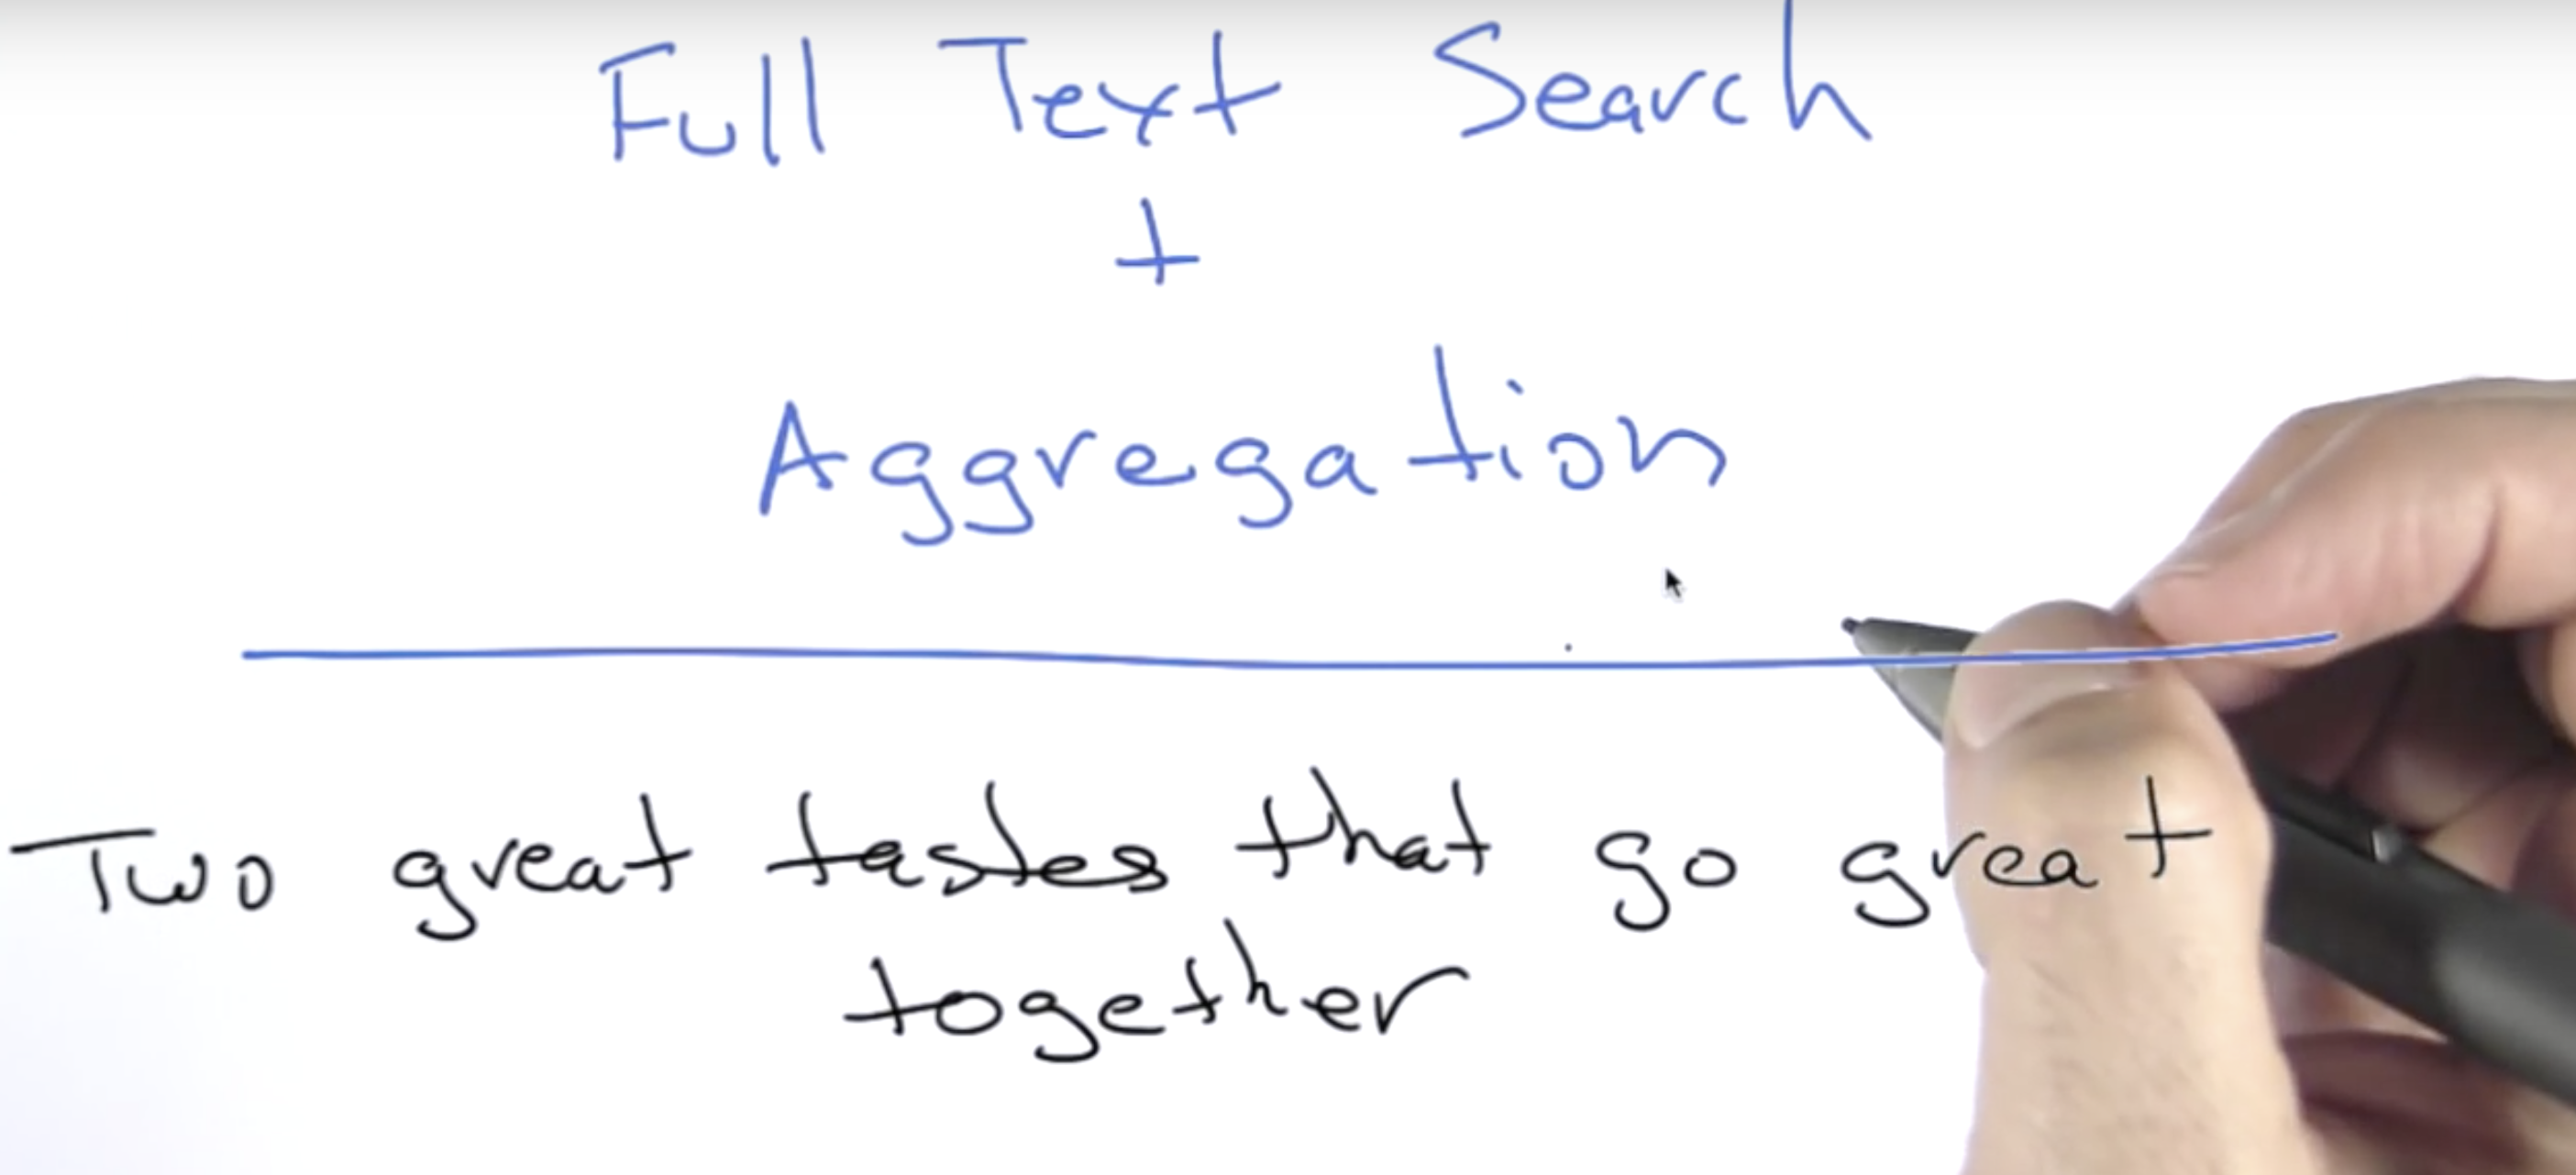 Full Text Search
+
Aggregation
Two great tastes that go great
together